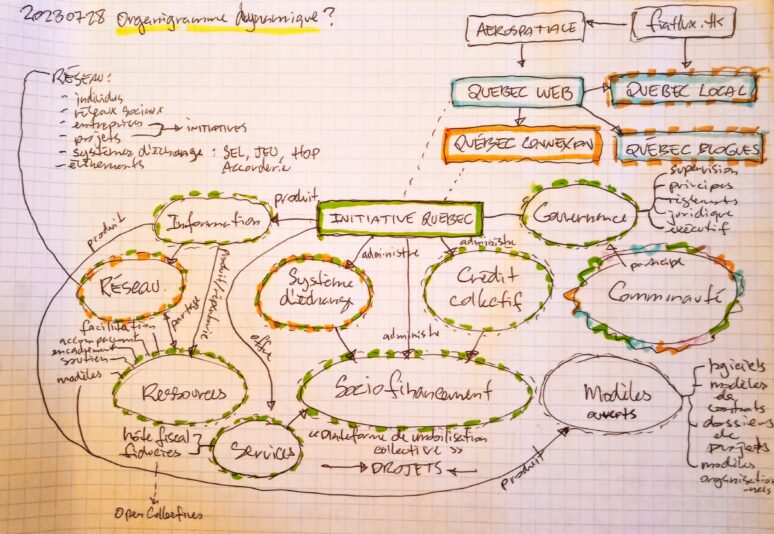 20230728 Organigramme dynamique ?
AEROSPATIALE
fiatlux.tk
RÉSEAU :
- individus
- réseaux sociaux
- entreprises
- projets
→ INITIATIVES
- systèmes d'échange : SEL, JEU, HOP
Accorderie
- évènements
QUEBEC WEB
QUEBEC LOCAL
QUÉBEC CONNEXION
QUEBEC BLOGUES
produit
Information
produit
INITIATIVE QUEBEC
Gouvernance
supervision
principes
règlements
juridique
exécutif
administre
administre
administre
RÉSEAU
partage
offre
Système
d'échange
Crédit
collectif
participe
Communauté
facilitation
accompagnement
encadrement
soutien
modèles
Ressources
Sociofinancement
Modèles
ouverts
logiciels
modèles
de
contrats
dossiers
de
projets
modèles
organisation
-nels
hôte fiscal
fiducies
Services
« Plateforme de mobilisation
collective »
→ PROJETS ←
produit
Open Collectives